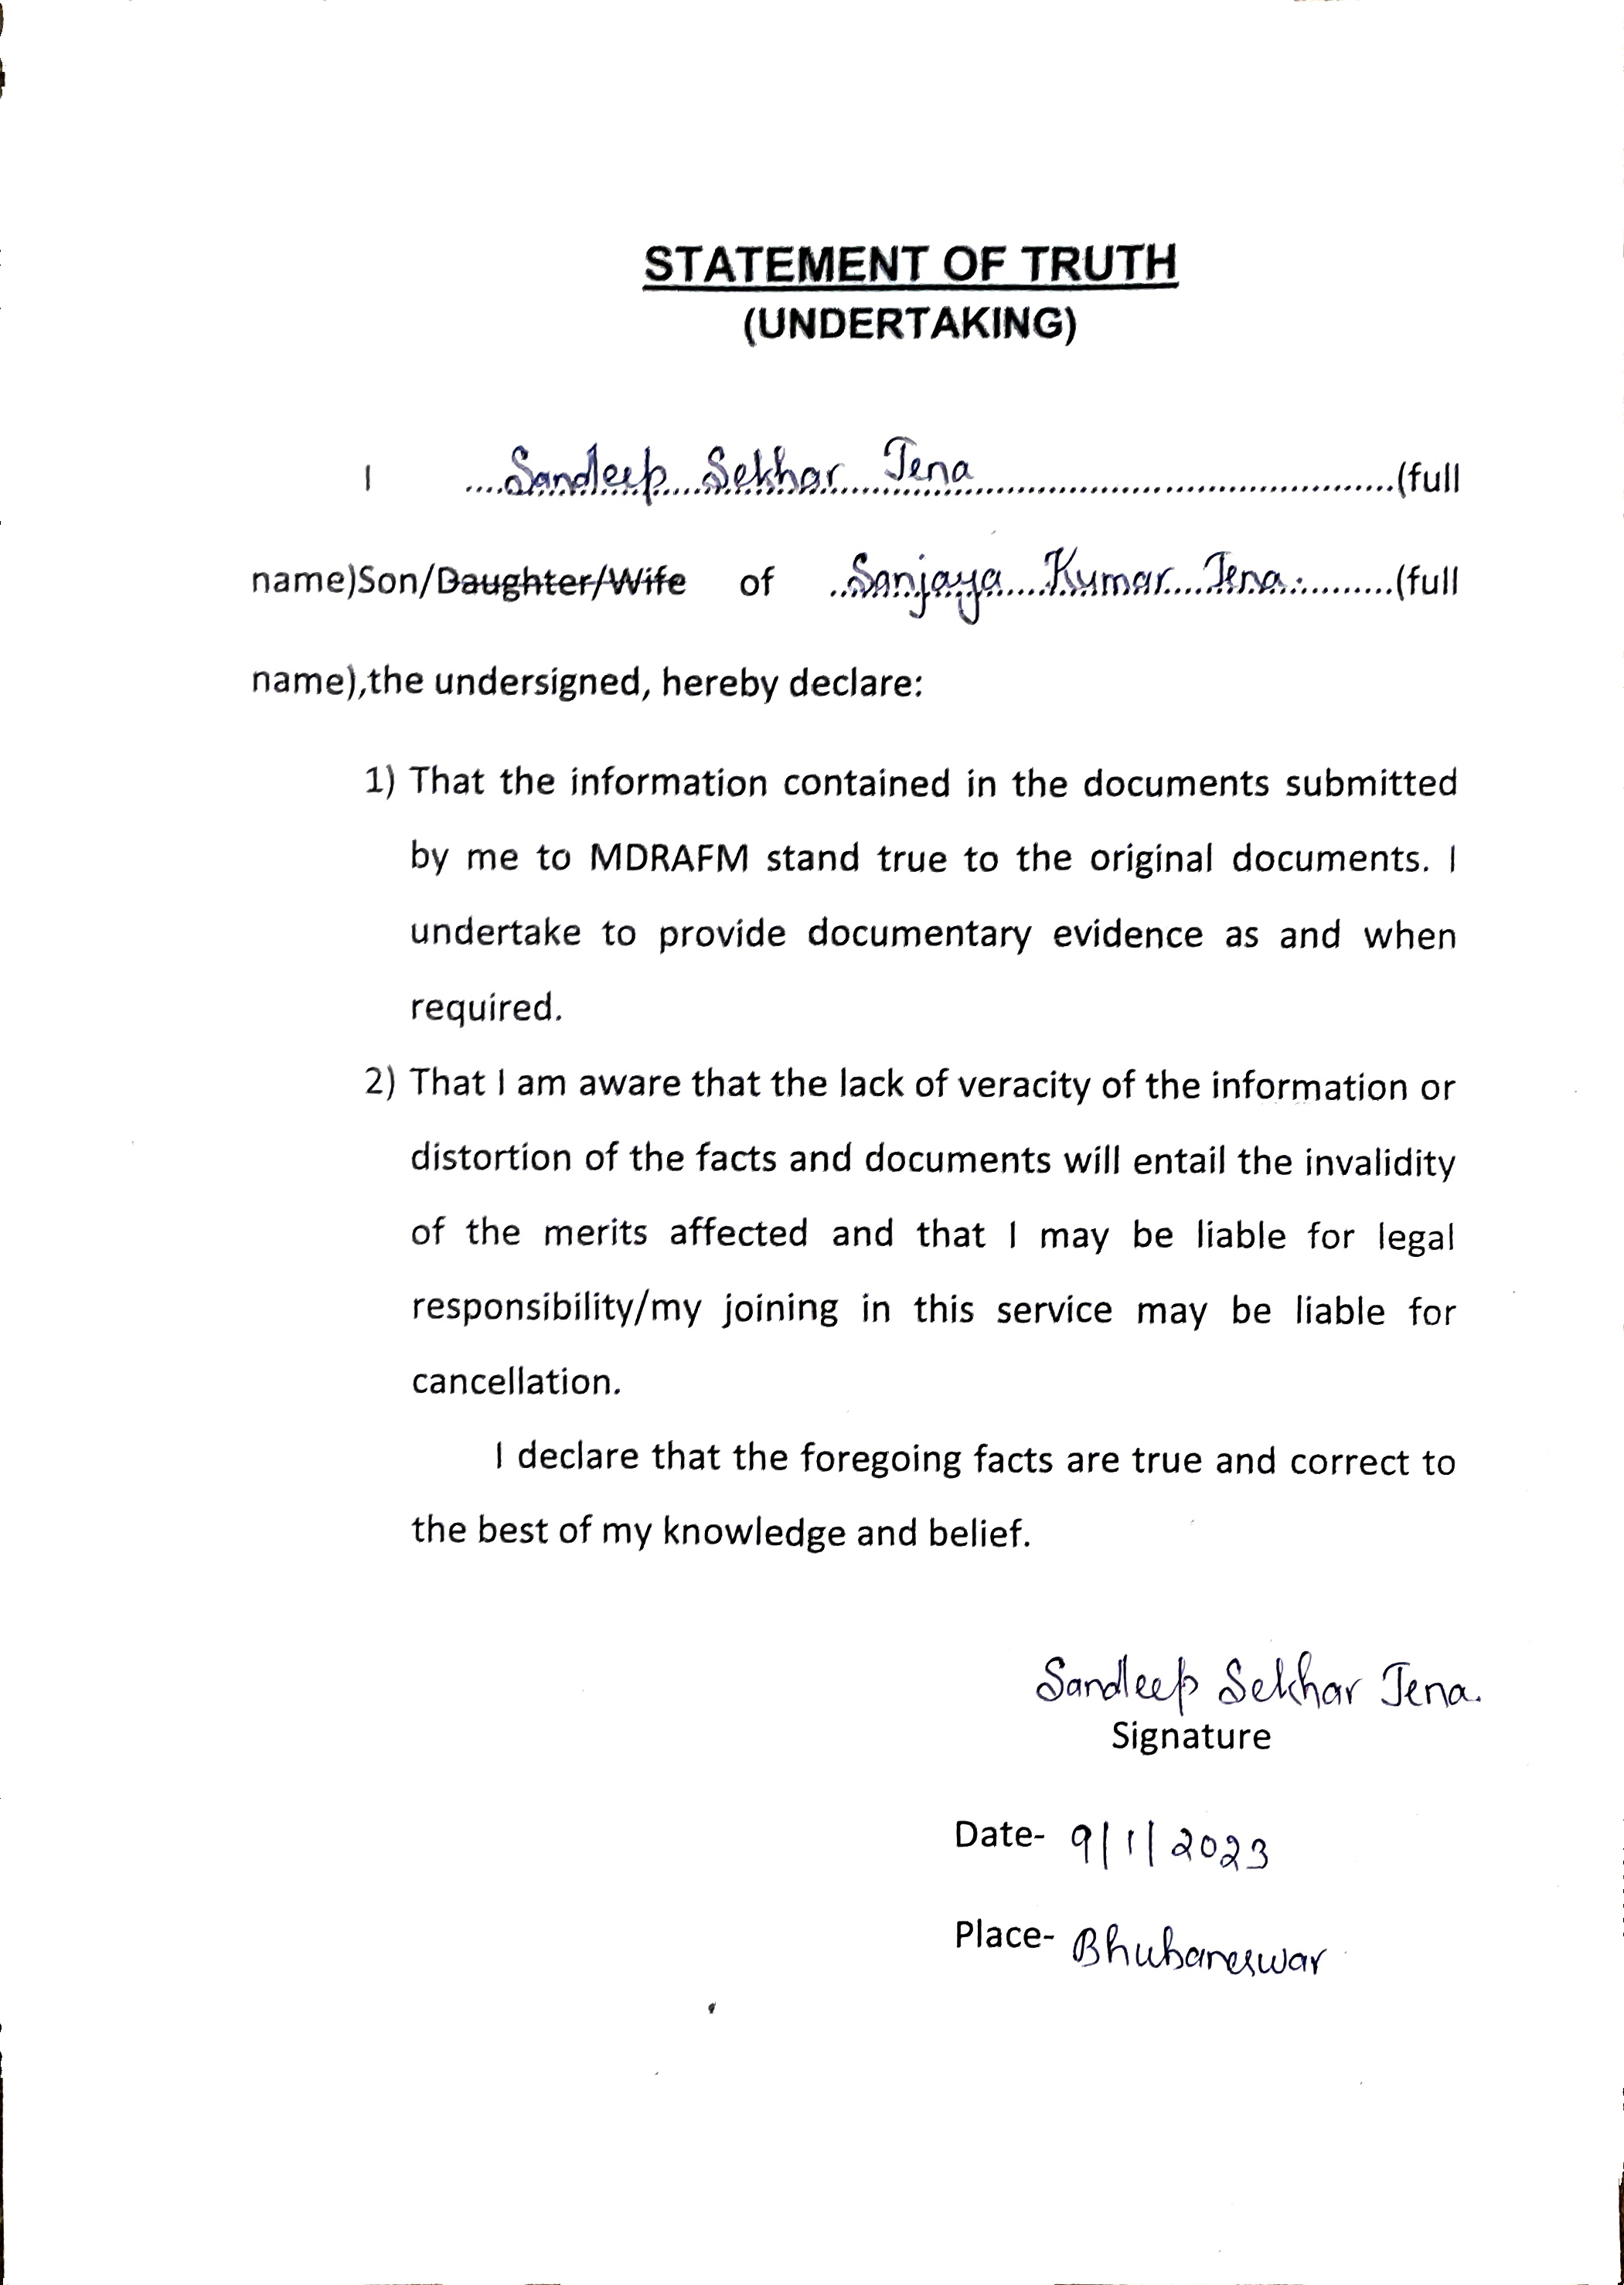 STATEMENT OF TRUTH
(UNDERTAKING)
I ....Sandeep Sekhar Jena....(full
name)Son/Daughter/Wife of ..Sanjaya Kumar Jena.....(full
name),the undersigned, hereby declare:
1) That the information contained in the documents submitted
by me to MDRAFM stand true to the original documents. I
undertake to provide documentary evidence as and when
required.
2) That I am aware that the lack of veracity of the information or
distortion of the facts and documents will entail the invalidity
of the merits affected and that I may be liable for legal
responsibility/my joining in this service may be liable for
cancellation.
I declare that the foregoing facts are true and correct to
the best of my knowledge and belief.
Sandeep Sekhar Jena.
Signature
Date- 9/1/2023
Place- Bhubaneswar